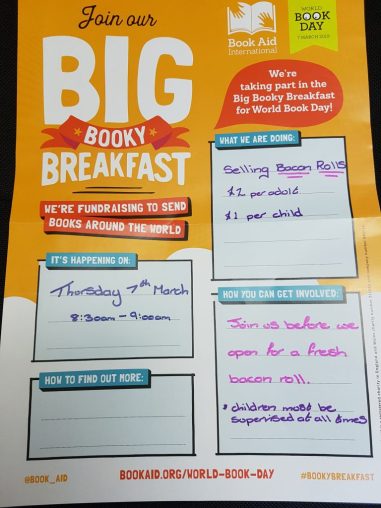 Join our
BIG
BOOKY
BREAKFAST
WE'RE FUNDRAISING TO SEND
BOOKS AROUND THE WORLD
Book Aid
International
WORLD
BOOK
DAY
7 MARCH 2019
We're
taking part in the
Big Booky Breakfast
for World Book Day!
WHAT WE ARE DOING:
Selling Bacon Rolls
£2 per adult
£1 per child
IT'S HAPPENING ON:
Thursday 7th March
8:30am - 9:00am
HOW YOU CAN GET INVOLVED:
Join us before we
open for a fresh
bacon roll.
* children must be
supervised at all times
HOW TO FIND OUT MORE:
@BOOK_AID
BOOKAID.ORG/WORLD-BOOK-DAY
#BOOKYBREAKFAST